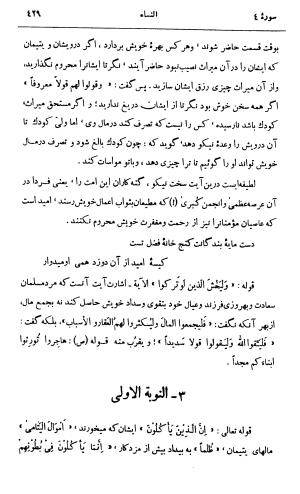 سورهٔ ۴ النساء ۴۲۹
بوقت قسمت حاضر شوند، وهر کس بهرهٔ خویش بردارد، اگر درویشان و یتیمان
که ایشان را در آن میراث نصیب نبود حاضر آیند، نگر تا ایشانرا محروم نگذارید،
واز آن میراث چیزی رزق ایشان سازید. پس گفت: « وقولوا لهم قولاً معروفاً »
اگر همه سخن خوش بود نگر تا از ایشان دریغ ندارید؛ و اگر مستحق میراث
کودك باشد نارسیده، کس را نیست که تصرف کند در مال وی، اما ولی کودك تا
آن درویش را وعدهٔ نیکو دهد؛ گوید که: چون کودك بالغ شود و تصرف در مال
خویش تواند او را گوئیم تا ترا چیزی دهد، وباتو مواسات کند.
لطیفه ایست درین آیت سخت نیکو، گنه کاران این امت را، یعنی فردا در
آن عرصهٔ عظمی وانجمن کبری (۱) که مطیعان بثواب اعمال خویش رسند، امید است
که عاصیان مؤمنانرا نیز از رحمت ومغفرت خویش محروم نکند.
دست مایهٔ بندگانت گنج خانهٔ فضل تست
کیسهٔ امید از آن دوزد همی اومیدوار
قوله: « وَلْیَخْشَ الَّذینَ لَو تَرَکوا » الآیة ـ اشارت آیت آنست که مرد مسلمان
سعادت و بهروزی فرزند وعیال خود بتقوی وسداد خویش حاصل کند نه بجمع مال،
از بهر آنکه نگفت: « فلیجمعوا المال ولیکثروا لهم العقار و الأسباب»، بلکه گفت:
« فَلْیَتَّقُوا اللّٰهَ وَلْیَقولوا قولاً سدیداً »؛ و یقرب منه قوله (ص): هاجروا تورثوا
ابناء کم مجداً.
۳ ـ النوبة الاولی
قوله تعالی: « إِنَّ الَّذینَ یَأْ کُلُونَ » ایشان که میخورند، « أَمْوالَ الْیَتامیٰ »
مالهای یتیمان، « ظُلْماً » به بیداد بیش از مزد کار، « إِنَّما یَأْ کُلُونَ فی بُطُونِهِمْ